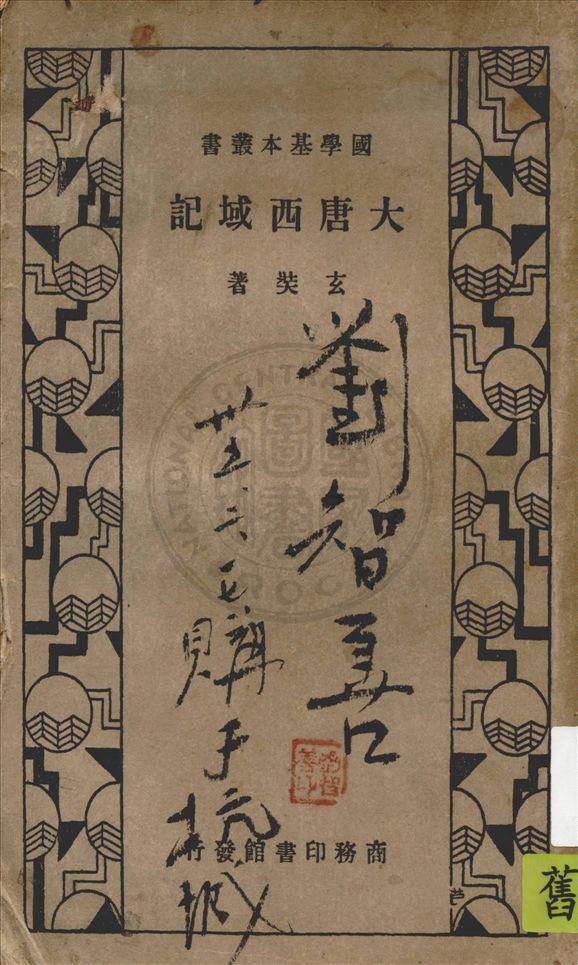 國學基本叢書
大唐西域記
玄奘著
劉智善
購于杭城
商務印書館發行
舊
NATIONAL CENTRAL